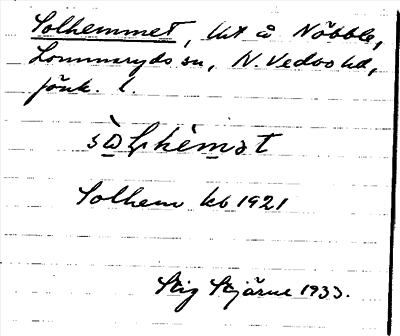 Solhemmet, lht å Nöbbele,
Lommaryds sn, N. Vedbo hd,
jönk. l.
sòlhèmət
Solhem kb 1921
Stig Stjärne 1933.